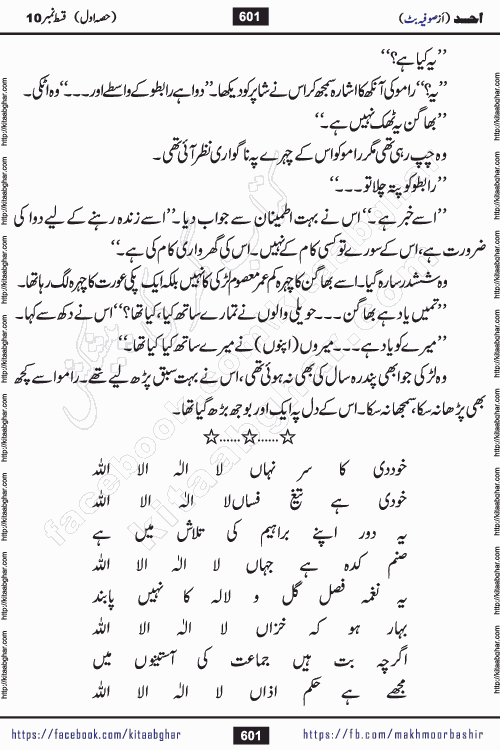 احمد (از صوفیہ بٹ) 601 (حصہ اول) قسط نمبر 10
’’یہ کیا ہے؟‘‘
’’یہ؟‘‘ راموکی آنکھ کا اشارہ سمجھ کر اس نے شاپر کو دیکھا۔ ’’دوا ہے رابطو کے واسطے اور۔۔۔‘‘ وہ اٹکی۔
’’بھاگن یہ ٹھک نہیں ہے۔‘‘
وہ چپ رہی تھی مگر راموکو اس کے چہرے پہ ناگواری نظر آئی تھی۔
’’رابطو کو پتہ چلا تو۔۔۔‘‘
’’اسے خبر ہے۔‘‘ اس نے بہت اطمینان سے جواب دیا۔ ’’اسے زندہ رہنے کے لیے دوا کی
ضرورت ہے، اس کے سورے تو کسی کام کے نہیں۔ اس کی گھر واری کام کی ہے۔‘‘
وہ ششدر سا رہ گیا۔ اسے بھاگن کا چہرہ کم عمر معصوم لڑکی کا نہیں بلکہ ایک پکی عورت کا چہرہ لگ رہا تھا۔
’’تمیں یاد ہے بھاگن۔۔۔ حویلی والوں نے تمارے ساتھ کیا، کیا تھا؟‘‘ اس نے دکھ سے کہا۔
’’میرے کو یاد ہے۔۔۔ میروں (اپنوں) نے میرے ساتھ کیا، کیا تھا۔‘‘
وہ لڑکی جو ابھی پندرہ سال کی بھی نہ ہوئی تھی، اس نے بہت سبق پڑھ لیے تھے۔ راموا سے کچھ
بھی پڑھا نہ سکا، سمجھا نہ سکا۔ اس کے دل پہ ایک اور بوجھ بڑھ گیا تھا۔
☆......☆......☆
خوددی کا سر نہاں لا الٰہ الا اللہ
خودی ہے تیغ فساںلا الٰہ الا اللہ
یہ دور اپنے براہیم کی تلاش میں ہے
صنم کدہ ہے جہاں لا الٰہ الا اللہ
یہ نغمہ فصل گل و لالہ کا نہیں پابند
بہار ہو کہ خزاں لا الٰہ الا اللہ
اگرچہ بت ہیں جماعت کی آستینوں میں
مجھے ہے حکم اذاں لا الٰہ الا اللہ
https://facebook.com/kitaabghar 601 https://fb.com/makhmoorbashir
http://kitaabghar.com